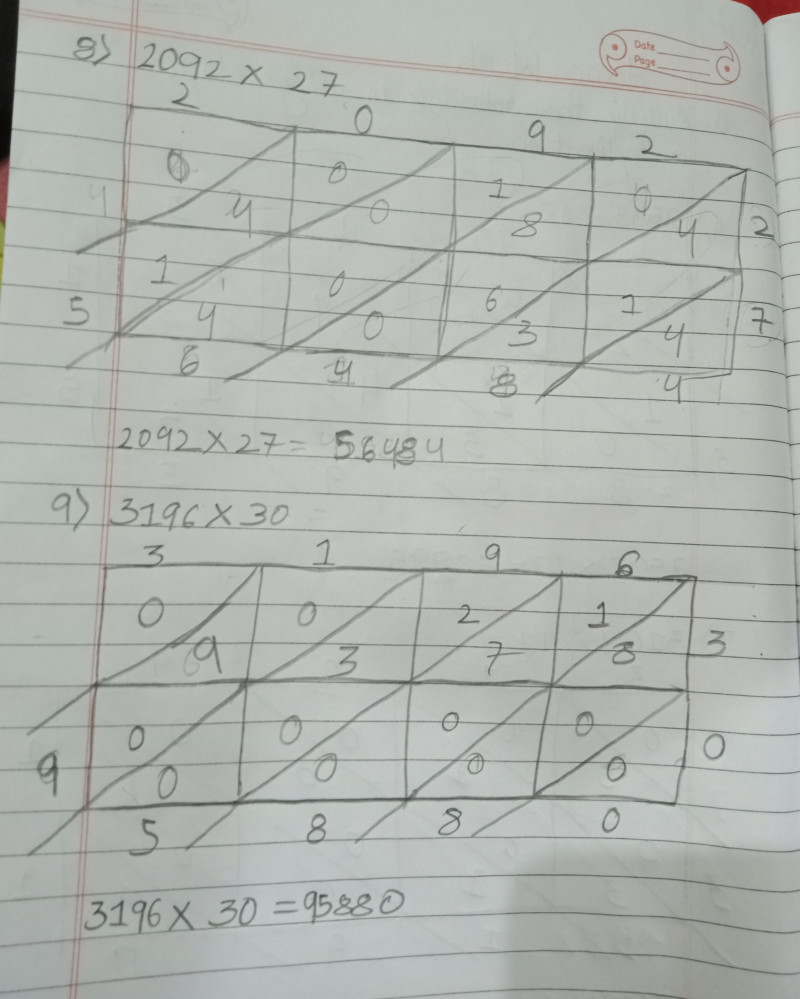 Date
Page
8) 2092 × 27
2 0 9 2
0 0 1 0
4 4 0 8 4 2
1 0 6 1
5 4 0 3 4 7
6 4 8 4
2092 × 27 = 56484
9) 3196 × 30
3 1 9 6
0 0 2 1
9 3 7 8 3
0 0 0 0
9 0 0 0 0 0
5 8 8 0
3196 × 30 = 95880